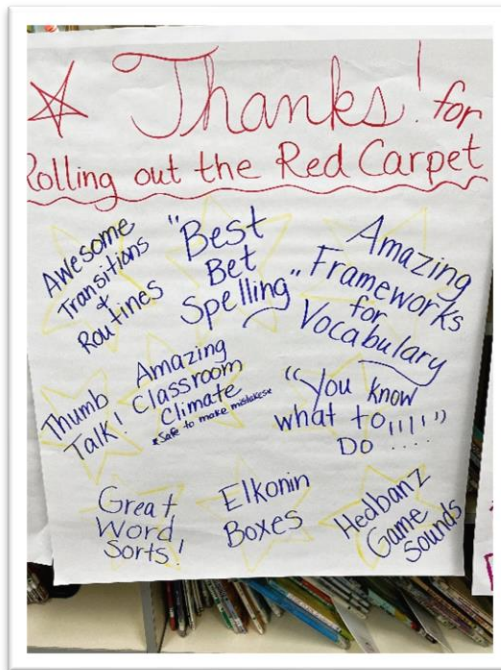 Thanks! for
Rolling out the Red Carpet
Awesome
Transitions
&
Routines
"Best
Bet
Spelling"
Amazing
Frameworks
for
Vocabulary
Thumb
Talk!
Amazing
Classroom
Climate
*Safe to make mistakes*
"You know
what to
DO ....
Great
Word
Sorts!
Elkonin
Boxes
Hedbanz
Game
Sounds